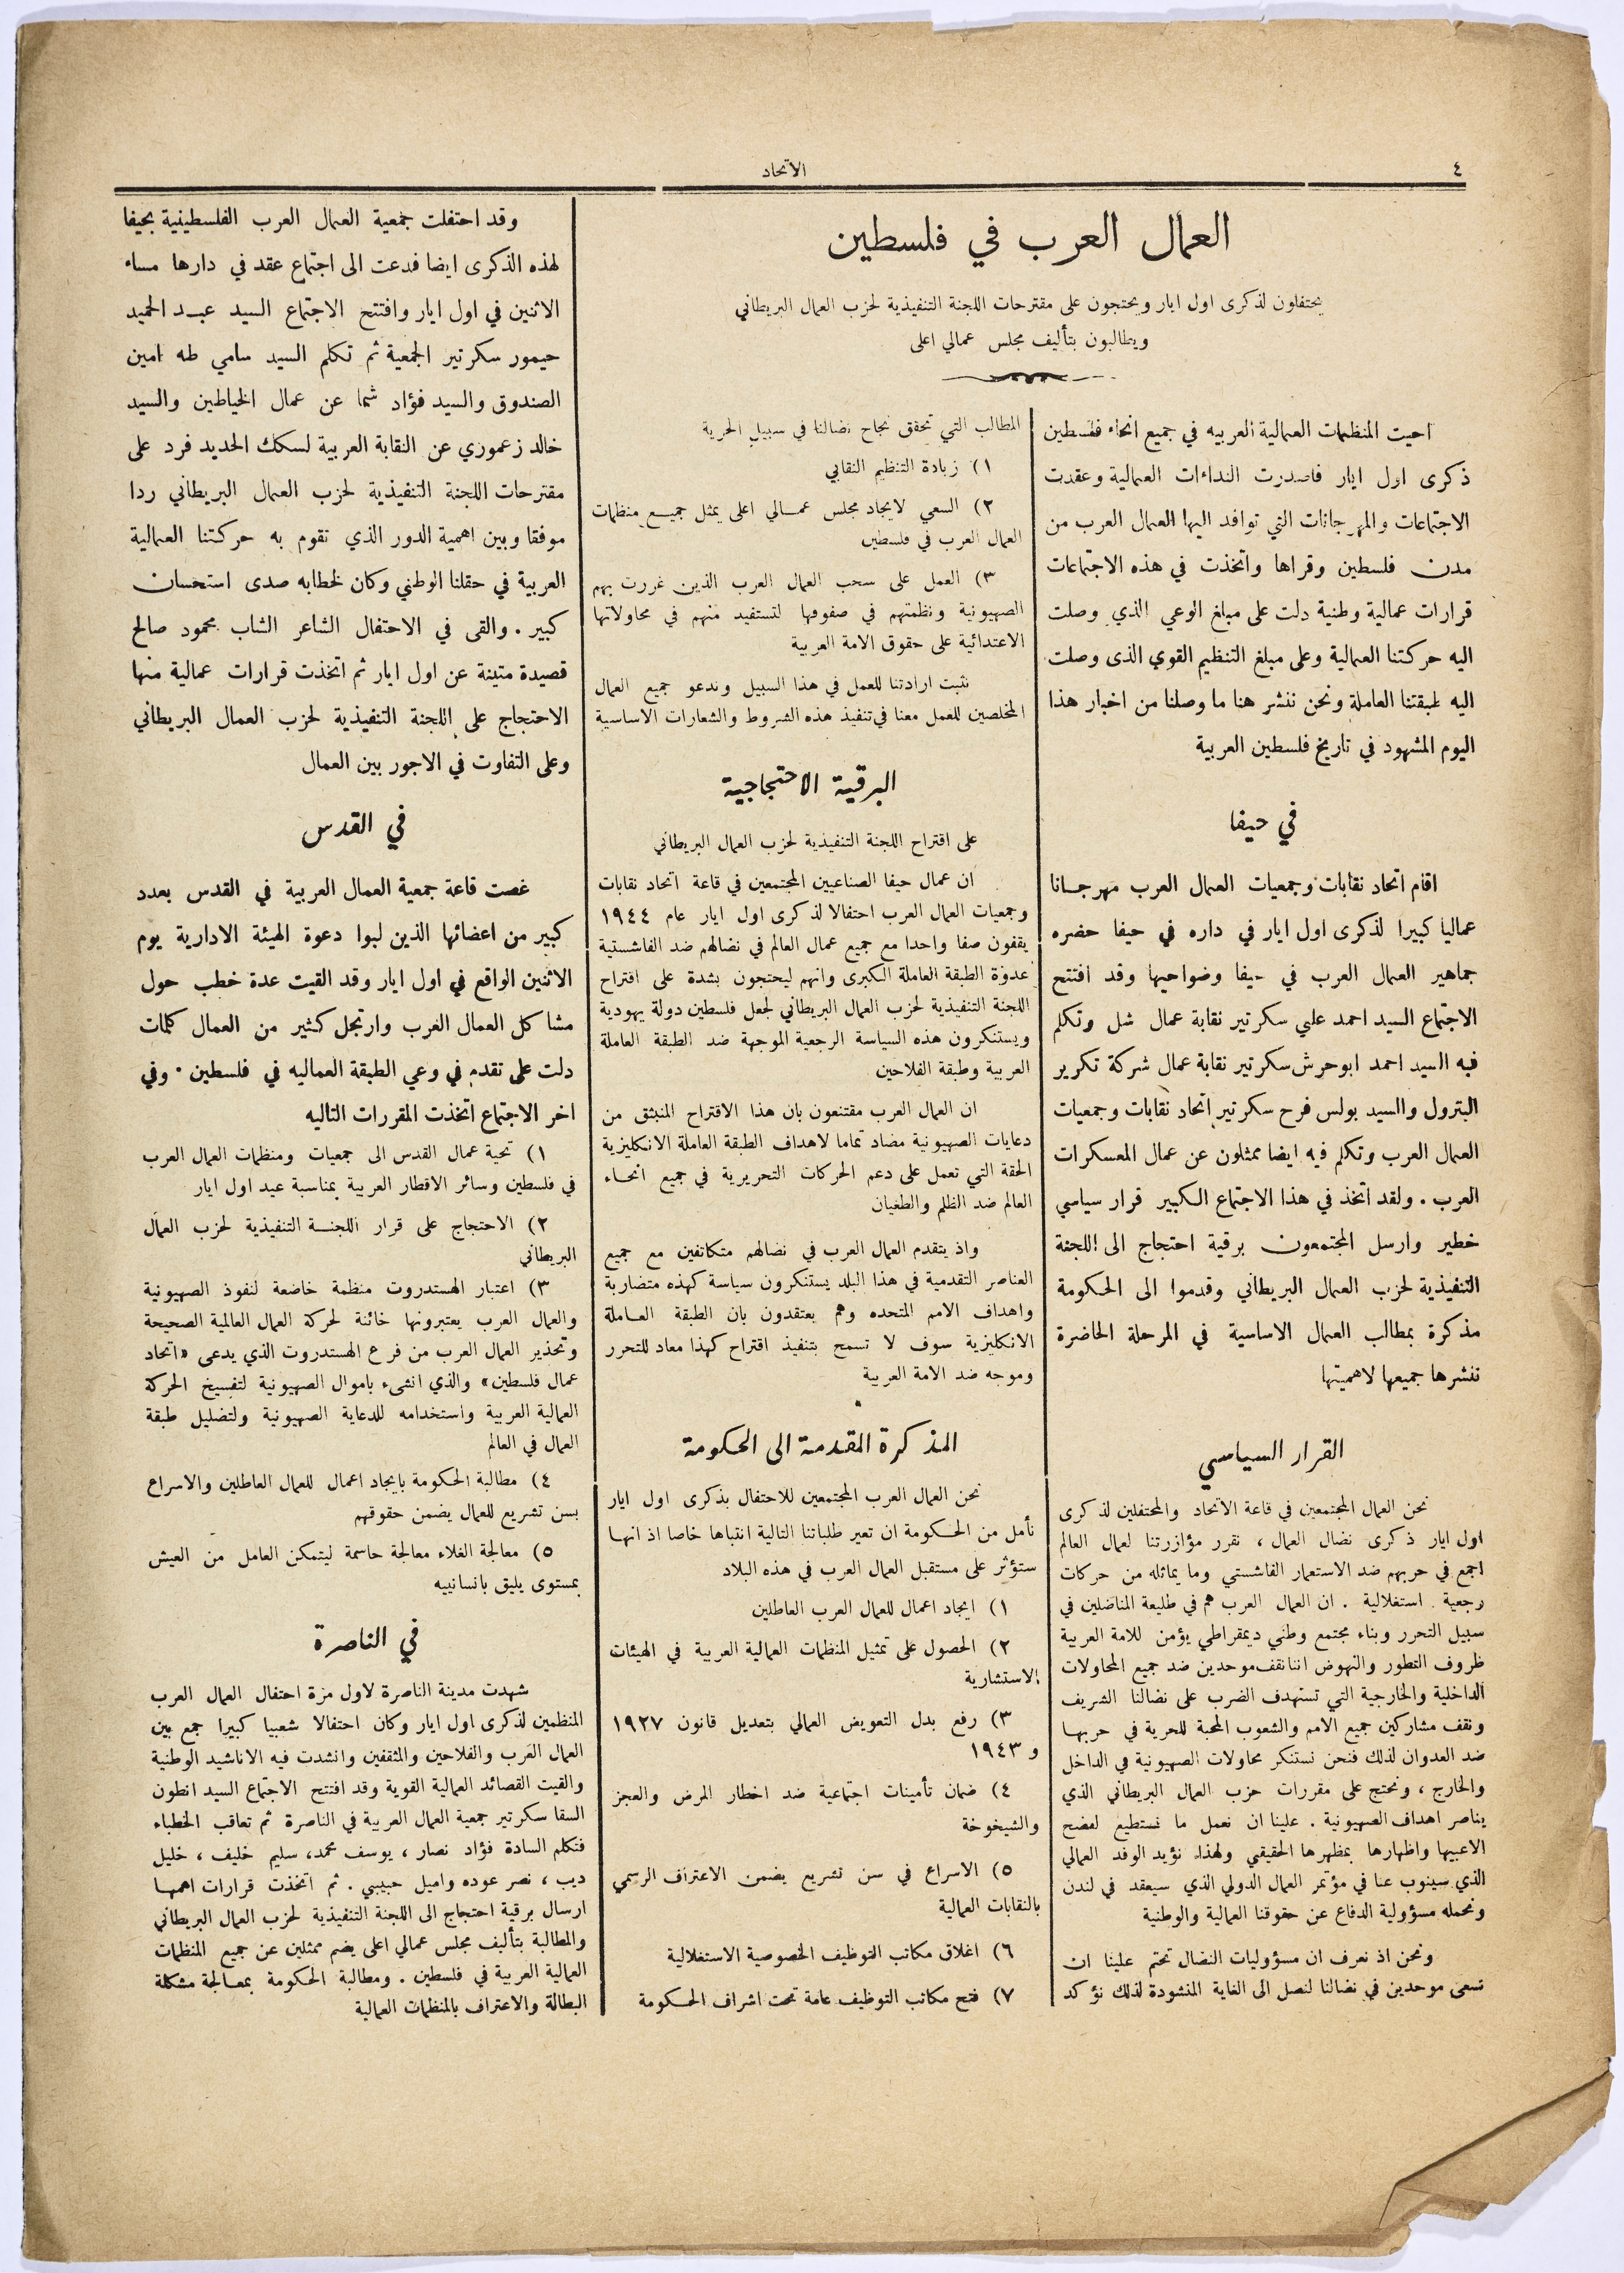 ٤
الاتحاد
العمال العرب في فلسطين
يحتفلون لذكرى اول ايار ويحتجون على مقترحات اللجنة التنفيذية لحزب العمال البريطاني
ويطالبون بتأليف مجلس عمالي اعلى
احيت المنظمات العمالية العربيه في جميع انحاء فلسطين
ذكرى اول ايار فاصدرت النداءات العمالية وعقدت
الاجتماعات والمهرجانات التي توافد اليها العمال العرب من
مدن فلسطين وقراها واتخذت في هذه الاجتماعات
قرارات عمالية وطنية دلت على مبلغ الوعي الذي وصلت
اليه حركتنا العمالية وعلى مبلغ التنظيم القوي الذى وصلت
اليه طبقتنا العاملة ونحن ننشر هنا ما وصلنا من اخبار هذا
اليوم المشهود في تاريخ فلسطين العربية
في حيفا
اقام اتحاد نقابات وجمعيات العمال العرب مهرجانا
عماليا كبيرا لذكرى اول ايار في داره في حيفا حضره
جماهير العمال العرب في حيفا وضواحيها وقد افتتح
الاجتماع السيد احمد علي سكرتير نقابة عمال شل وتكلم
فيه السيد احمد ابوحرش سكرتير نقابة عمال شركة تكرير
البترول والسيد بولس فرح سكرتير اتحاد نقابات وجمعيات
العمال العرب وتكلم فيه ايضا ممثلون عن عمال المعسكرات
العرب . ولقد اتخذ في هذا الاجتماع الكبير قرار سياسي
خطير وارسل المجتمعون برقية احتجاج الى اللجنة
التنفيذية لحزب العمال البريطاني وقدموا الى الحكومة
مذكرة بمطالب العمال الاساسية في المرحلة الحاضرة
ننشرها جميعها لاهميتها
القرار السياسي
نحن العمال المجتمعين في قاعة الاتحاد والمحتفلين لذكرى
اول ايار ذكرى نضال العمال ، نقرر مؤازرتنا لعمال العالم
اجمع في حربهم ضد الاستعمار الفاشستي وما يماثله من حركات
رجعية استغلالية . ان العمال العرب هم في طليعة المناضلين في
سبيل التحرر وبناء مجتمع وطني ديمقراطي يؤمن للامة العربية
ظروف التطور والنهوض اننا نقف موحدين ضد جميع المحاولات
الداخلية والخارجية التي تستهدف الضرب على نضالنا الشريف
ونقف مشاركين جميع الامم والشعوب المحبة للحرية في حربها
ضد العدوان لذلك فنحن نستنكر محاولات الصهيونية في الداخل
والخارج ، ونحتج على مقررات حزب العمال البريطاني الذي
يناصر اهداف الصهيونية . علينا ان نعمل ما نستطيع لفضح
الاعيبها واظهارها بمظهرها الحقيقي ولهذا نؤيد الوفد العمالي
الذي سينوب عنا في مؤتمر العمال الدولي الذي سيعقد في لندن
ونحمله مسؤولية الدفاع عن حقوقنا العمالية والوطنية
ونحن اذ نعرف ان مسؤوليات النضال تحتم علينا ان
نسعى موحدين في نضالنا لنصل الى الغاية المنشودة لذلك نؤكد
المطالب التي تحقق نجاح نضالنا في سبيل الحرية
١) زيادة التنظيم النقابي
٢) السعي لايجاد مجلس عمالي اعلى يمثل جميع منظمات
العمال العرب في فلسطين
٣) العمل على سحب العمال العرب الذين غررت بهم
الصهيونية ونظمتهم في صفوفها لتستفيد منهم في محاولاتها
الاعتدائية على حقوق الامة العربية
نثبت ارادتنا للعمل في هذا السبيل وندعو جميع العمال
المخلصين للعمل معنا في تنفيذ هذه الشروط والشعارات الاساسية
البرقية الاحتجاجية
على اقتراح اللجنة التنفيذية لحزب العمال البريطاني
ان عمال حيفا الصناعيين المجتمعين في قاعة اتحاد نقابات
وجمعيات العمال العرب احتفالا لذكرى اول ايار عام ١٩٤٤
يقفون صفا واحدا مع جميع عمال العالم في نضالهم ضد الفاشستية
عدوة الطبقة العاملة الكبرى وانهم ليحتجون بشدة على اقتراح
اللجنة التنفيذية لحزب العمال البريطاني لجعل فلسطين دولة يهودية
ويستنكرون هذه السياسة الرجعية الموجهة ضد الطبقة العاملة
العربية وطبقة الفلاحين
ان العمال العرب مقتنعون بان هذا الاقتراح المنبثق من
دعايات الصهيونية مضاد تماما لاهداف الطبقة العاملة الانكليزية
الحقة التي تعمل على دعم الحركات التحريرية في جميع انحاء
العالم ضد الظلم والطغيان
واذ يتقدم العمال العرب في نضالهم متكاتفين مع جميع
العناصر التقدمية في هذا البلد يستنكرون سياسة كهذه متضاربة
واهداف الامم المتحده وهم يعتقدون بان الطبقة العاملة
الانكليزية سوف لا تسمح بتنفيذ اقتراح كهذا معاد للتحرر
وموجه ضد الامة العربية
المذكرة المقدمة الى الحكومة
نحن العمال العرب المجتمعين للاحتفال بذكرى اول ايار
نأمل من الحكومة ان تعير طلباتنا التالية انتباها خاصا اذ انها
ستؤثر على مستقبل العمال العرب في هذه البلاد
١) ايجاد اعمال للعمال العرب العاطلين
٢) الحصول على تمثيل المنظمات العمالية العربية في الهيئات
الاستشارية
٣) رفع بدل التعويض العمالي بتعديل قانون ١٩٢٧
و ١٩٤٣
٤) ضمان تأمينات اجتماعية ضد اخطار المرض والعجز
والشيخوخة
٥) الاسراع في سن تشريع يضمن الاعتراف الرسمي
بالنقابات العمالية
٦) اغلاق مكاتب التوظيف الخصوصية الاستغلالية
٧) فتح مكاتب التوظيف عامة تحت اشراف الحكومة
وقد احتفلت جمعية العمال العرب الفلسطينية بحيفا
لهذه الذكرى ايضا فدعت الى اجتماع عقد في دارها مساء
الاثنين في اول ايار وافتتح الاجتماع السيد عبد الحميد
حيمور سكرتير الجمعية ثم تكلم السيد سامي طه امين
الصندوق والسيد فؤاد شما عن عمال الخياطين والسيد
خالد زعموري عن النقابة العربية لسكك الحديد فرد على
مقترحات اللجنة التنفيذية لحزب العمال البريطاني ردا
موفقا وبين اهمية الدور الذي تقوم به حركتنا العمالية
العربية في حقلنا الوطني وكان لخطابه صدى استحسان
كبير . والقى في الاحتفال الشاعر الشاب محمود صالح
قصيدة متينة عن اول ايار ثم اتخذت قرارات عمالية منها
الاحتجاج على اللجنة التنفيذية لحزب العمال البريطاني
وعلى التفاوت في الاجور بين العمال
في القدس
غصت قاعة جمعية العمال العربية في القدس بعدد
كبير من اعضائها الذين لبوا دعوة الهيئة الادارية يوم
الاثنين الواقع في اول ايار وقد القيت عدة خطب حول
مشاكل العمال العرب وارتجل كثير من العمال كلمات
دلت على تقدم في وعي الطبقة العماليه في فلسطين . وفي
اخر الاجتماع اتخذت المقررات التاليه
١) تحية عمال القدس الى جمعيات ومنظمات العمال العرب
في فلسطين وسائر الاقطار العربية بمناسبة عيد اول ايار
٢) الاحتجاج على قرار اللجنة التنفيذية لحزب العمال
البريطاني
٣) اعتبار الهستدروت منظمة خاضعة لنفوذ الصهيونية
والعمال العرب يعتبرونها خائنة لحركة العمال العالمية الصحيحة
وتحذير العمال العرب من فرع الهستدروت الذي يدعى «اتحاد
عمال فلسطين» والذي انشىء باموال الصهيونية لتفسيخ الحركة
العمالية العربية واستخدامه للدعاية الصهيونية ولتضليل طبقة
العمال في العالم
٤) مطالبة الحكومة بايجاد اعمال للعمال العاطلين والاسراع
بسن تشريع للعمال يضمن حقوقهم
٥) معالجة الغلاء معالجة حاسمة ليتمكن العامل من العيش
بمستوى يليق بانسانييه
في الناصرة
شهدت مدينة الناصرة لاول مزة احتفال العمال العرب
المنظمين لذكرى اول ايار وكان احتفالا شعبيا كبيرا جمع بين
العمال العرب والفلاحين والمثقفين وانشدت فيه الاناشيد الوطنية
والقيت القصائد العمالية القوية وقد افتتح الاجتماع السيد انطون
السقا سكرتير جمعية العمال العربية في الناصرة ثم تعاقب الخطباء
فتكلم السادة فؤاد نصار ، يوسف محمد، سليم خليف ، خليل
ديب ، نصر عوده واميل حبيبي . ثم اتخذت قرارات اهمها
ارسال برقية احتجاج الى اللجنة التنفيذية لحزب العمال البريطاني
والمطالبة بتأليف مجلس عمالي اعلى يضم ممثلين عن جميع المنظمات
العمالية العربية في فلسطين . ومطالبة الحكومة بمعالجة مشكلة
البطالة والاعتراف بالمنظمات العمالية